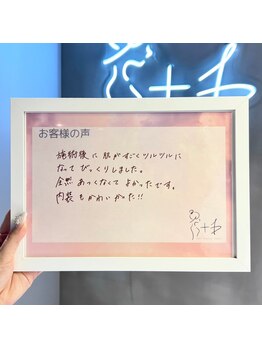 お客様の声
施術後に肌がすごくツルツルに
なってびっくりしました。
全然あつくなくてよかったです。
内装もかわいかった!!